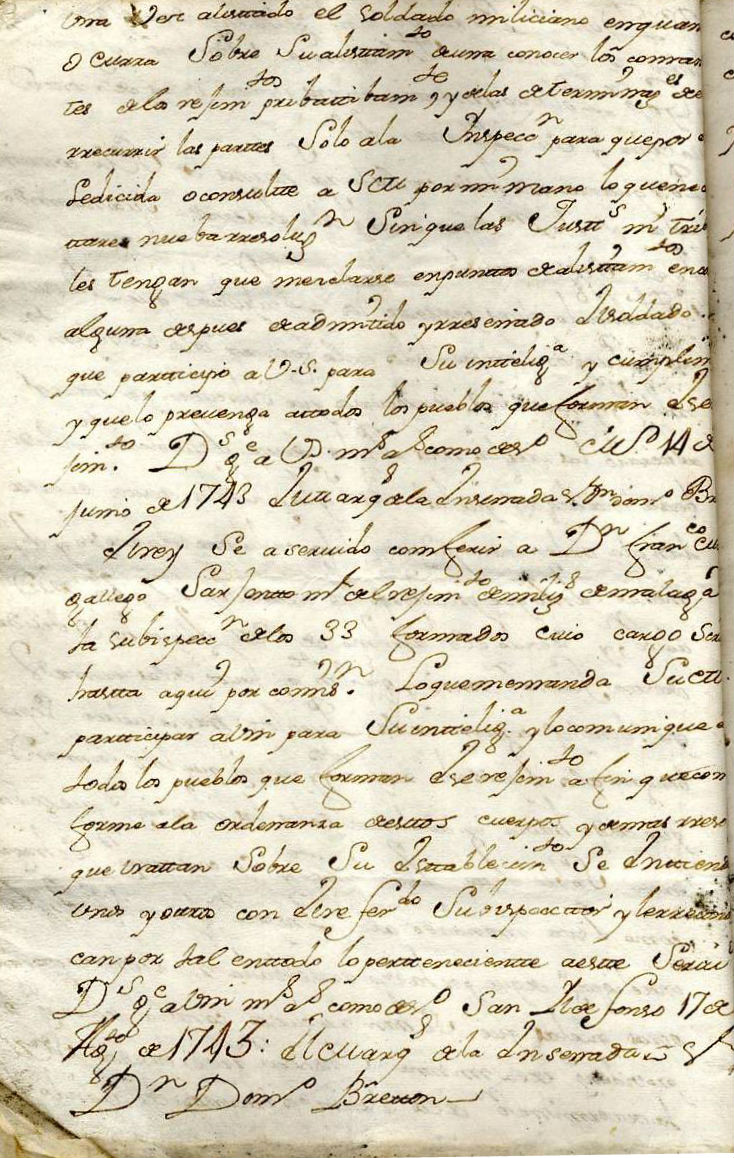 una vez alisttado el soldado miliciano en quan
ocurra sobre su alisttam.to deuna conocer los coman
tes de los rejim.tos pribattibam.te y delas determinaz.es de
rrecurrir las parttes solo ala Inspecc.n para que por
sedicida o consultte a S ctt por mi mano lo que nec
ttare nueba rresoluz.n sin que las Justt.s ni tri
les tengan que mezclarse en puntto de alisttam.tos en
alguna despues de admitido y rreseñado el soldado
que partticipo a V.S. para su inttelig.a y cumplim
y que lo prevenga a ttodos los pueblos que forman ese
jim.to D.s g.e a V.S. m.s a.s como des.o M.d 14 de
junio de 1743 El marq.s dela Ensenada S.r D.n Dom.o Br
El rey se a servido comferir a D.n Fran.co
gallego Sarjentto m.r del rejim.to de miliz.s de malaga
la subispecc.n de los 33 formados cuio cargo
hastta aqui por comis.n Lo que me manda Su
partticipar a Vm para Su inttelig.a y lo comunique a
todos los pueblos que forman ese rejim.to a fin que con
forme ala ordenanza de esttos cuerpos y demas rreso
que trattan sobre su esttablecim.to se enttiend
unos y ottros con el refer.do Subispecttor y le rrecono
can por tal en ttodo lo pertteneciente a estte Servi
D.s g.e a Vm m.s a.s como des.o San Ildefonso 17 de
Ag.to de 1743: El marq.s de la Ensenada = S.r
D.n Dom.o Bretton